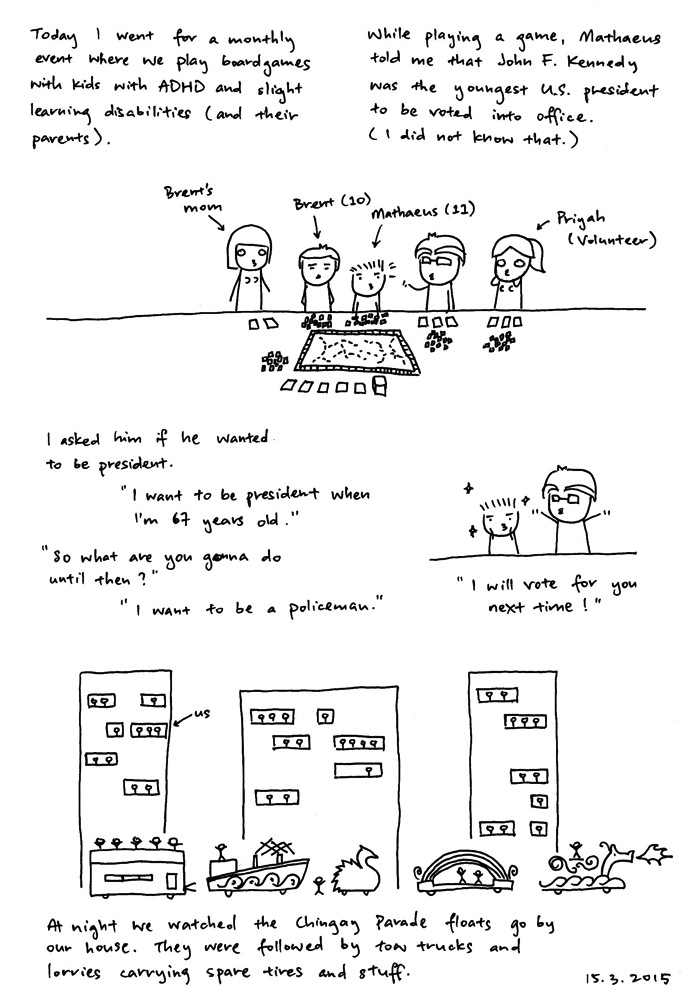 Today I went for a monthly
event where we play boardgames
with kids with ADHD and slight
learning disabilities (and their
parents).
While playing a game, Mathaeus
told me that John F. Kennedy
was the youngest U.S. president
to be voted into office.
(I did not know that.)
Brent's
mom
Brent (10)
Mathaeus (11)
Priyah
(Volunteer)
I asked him if he wanted
to be president.
"I want to be president when
I'm 67 years old."
"So what are you gonna do
until then?"
"I want to be a policeman."
"I will vote for you
next time!"
us
At night we watched the Chingay Parade floats go by
our house. They were followed by tow trucks and
lorries carrying spare tires and stuff.
15.3.2015